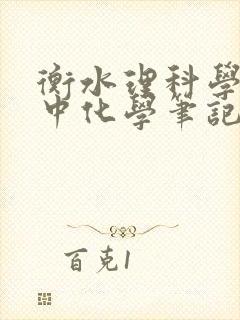 衡水理科學
中化學筆記
百克1